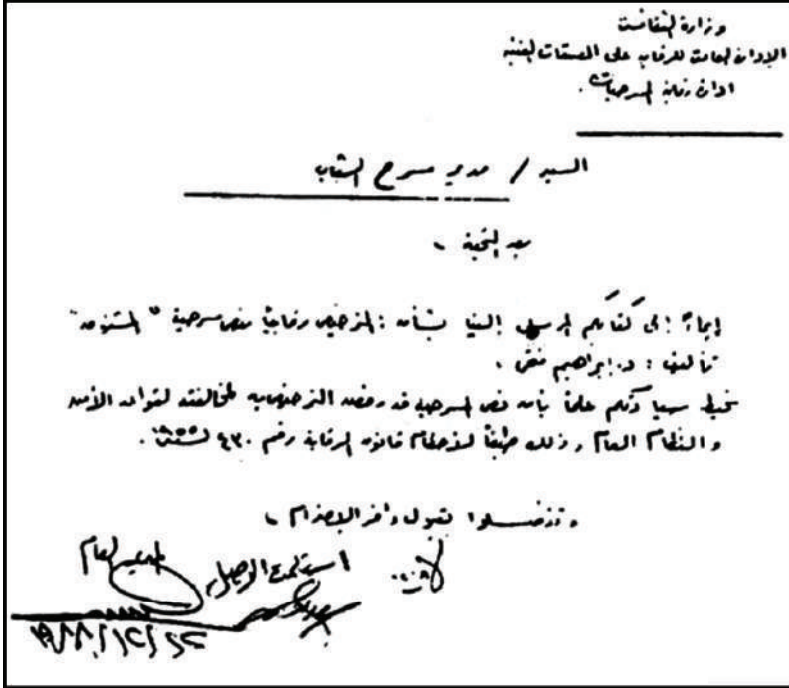 وزارة الثقافة
الإدارة العامة للرقابة على المصنفات الفنية
إدارة رقابة المسرحيات.
السيد / مدير مسرح الشباب
بعد التحية ،
إيماءً إلى كتابكم المرسل إلينا بشأن : الترخيص رقابياً بنص مسرحية "
تأليف : د. إبراهيم
نحيط سيادتكم علماً بأن نص المسرحية قد رفض الترخيص به لمخالفته لقواعد الأمن
والنظام العام ، وذلك طبقاً لأحكام قانون الرقابة رقم ٤٣٠ لسنة ١٩٥٥.
وتفضلوا بقبول وافر الاحترام ،
المدير العام